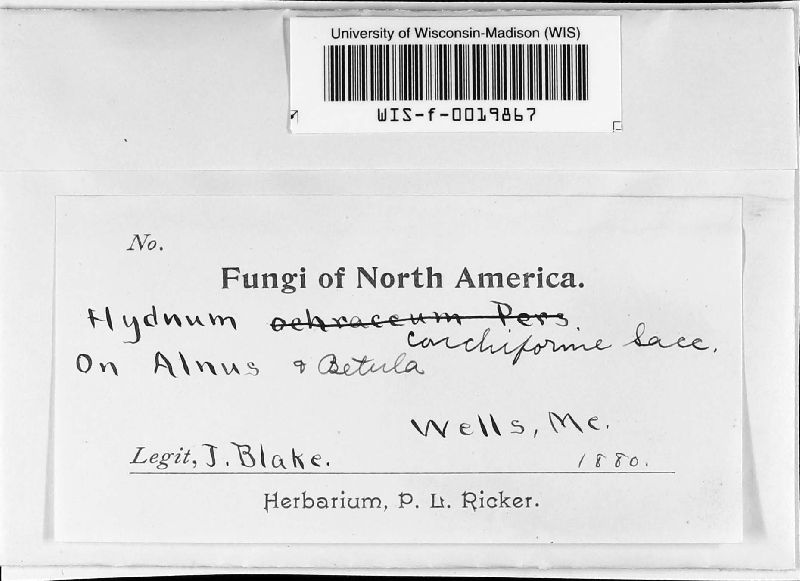 University of Wisconsin-Madison (WIS)
WIS-f-0019867
No.
Fungi of North America.
Hydnum ochraceum Pers.
conchiforme Sacc.
On Alnus & Betula
Wells, Me.
Legit, J. Blake. 1880.
Herbarium, P. L. Ricker.